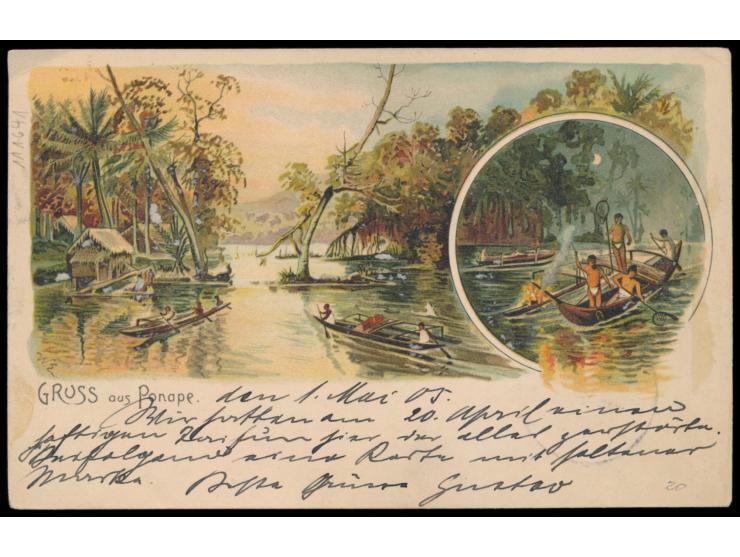 111641
GRUSS aus Ponape. den 1. Mai 05.
Wir hatten am 20. April einen
heftigen Taifun hier der alles zerstörte.
Beifolgend eine Karte mit seltener
Marke. Beste Grüsse Gustav
20